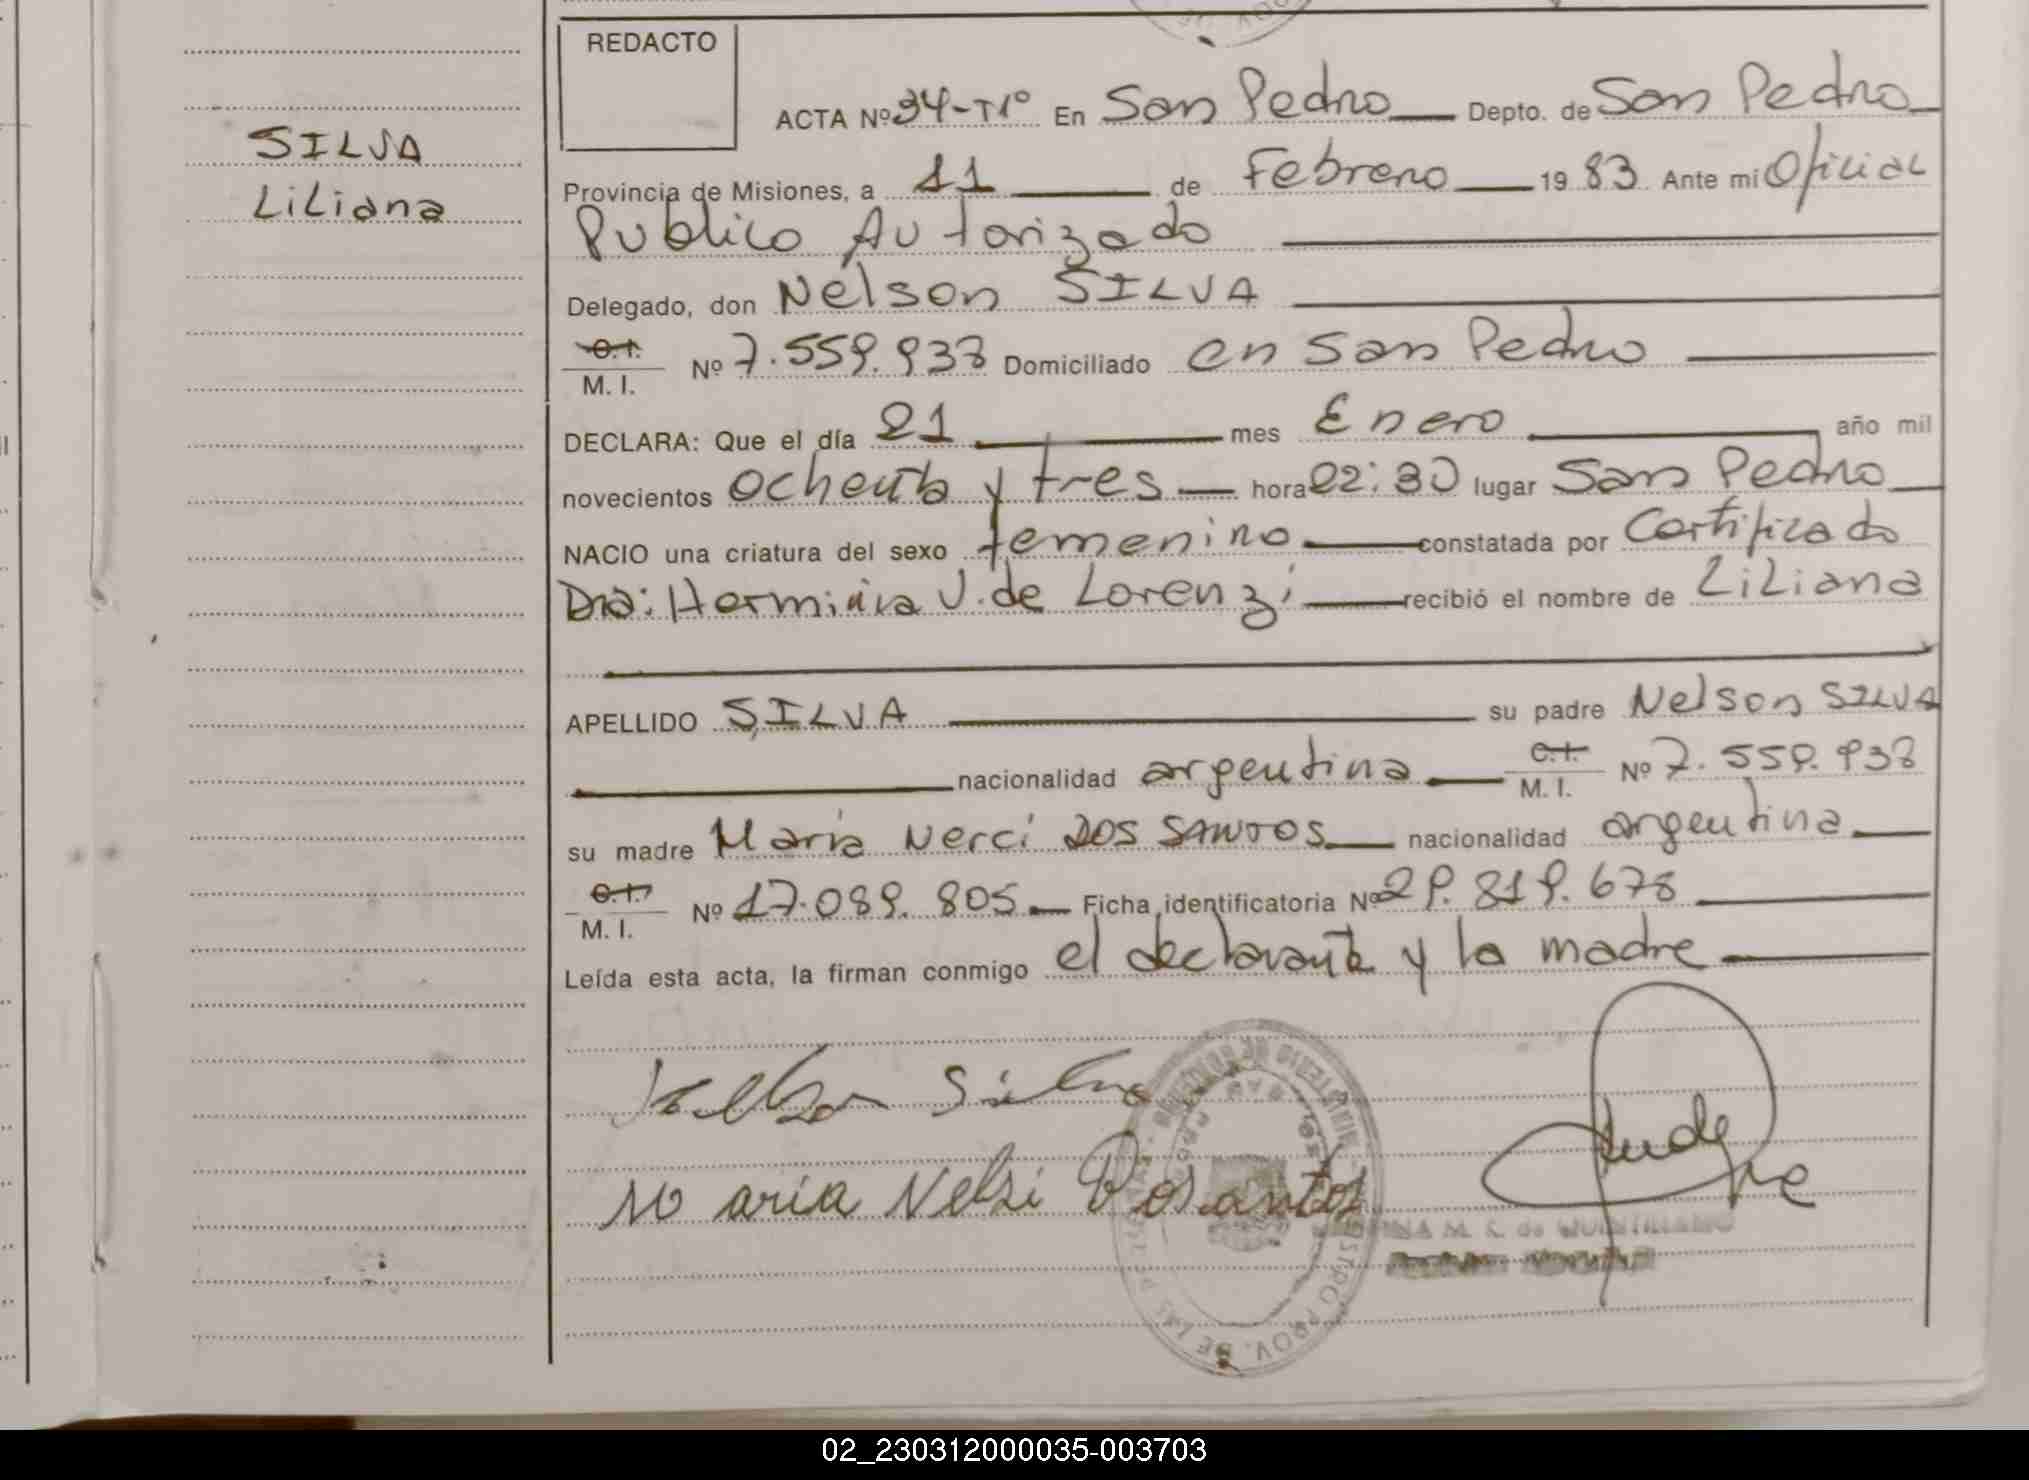 REDACTO
SILVA
Liliana
ACTA Nº 94-Tº1º En San Pedro Depto. de San Pedro
Provincia de Misiones, a 11 de Febrero 19 83 Ante mi Oficial
Publico Autorizado
Delegado, don Nelson SILVA
C.I.
M. I. Nº 7.559.938 Domiciliado en San Pedro
DECLARA: Que el día 21 mes Enero año mil
novecientos ochenta y tres hora 02:30 lugar San Pedro
NACIO una criatura del sexo femenino constatada por Certificado
Dra: Herminia J. de Lorenzi recibió el nombre de Liliana
APELLIDO SILVA su padre Nelson SILVA
nacionalidad argentina C.I. M. I. Nº 7.559.938
su madre Maria Nerci DOS SANTOS nacionalidad argentina
C.I.
M. I. Nº 17.089.805 Ficha identificatoria Nº 29.819.678
Leída esta acta, la firman conmigo el declarante y la madre
Nelson Silva
Maria Nelsi Dosantos
M. C. de QUINTILLANO
02_230312000035-003703